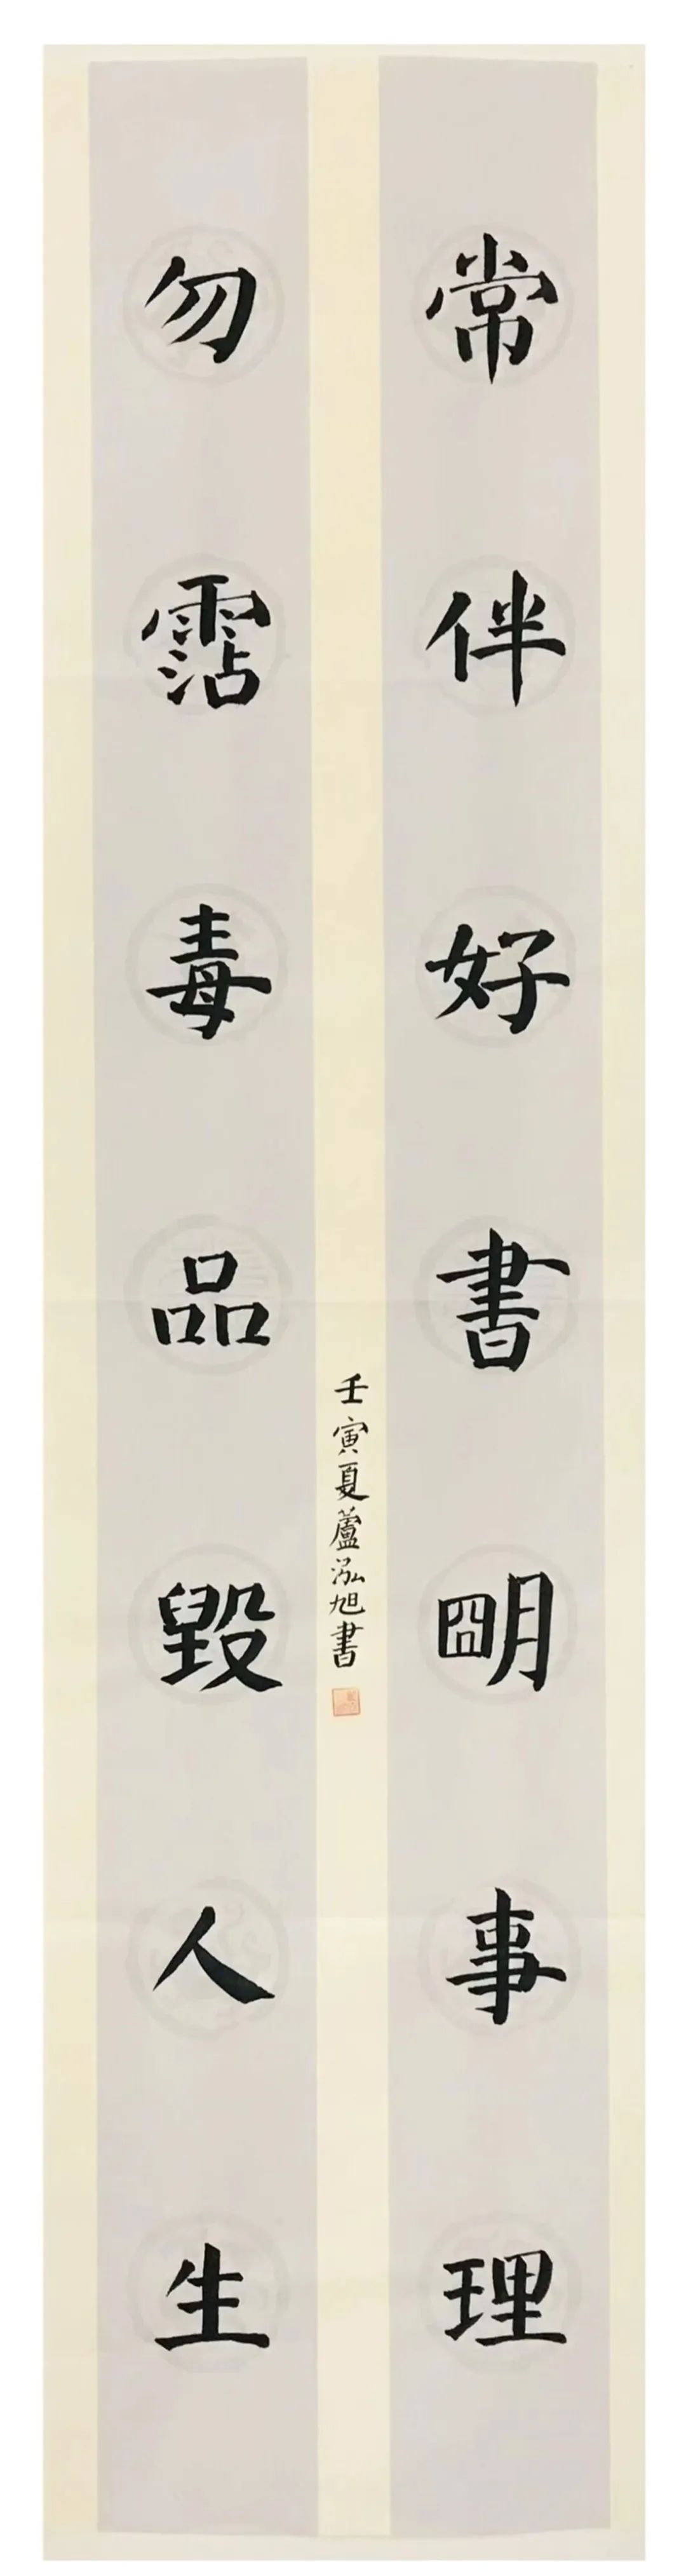 常伴好書明事理
勿霑毒品毀人生
壬寅夏蘆泓旭書